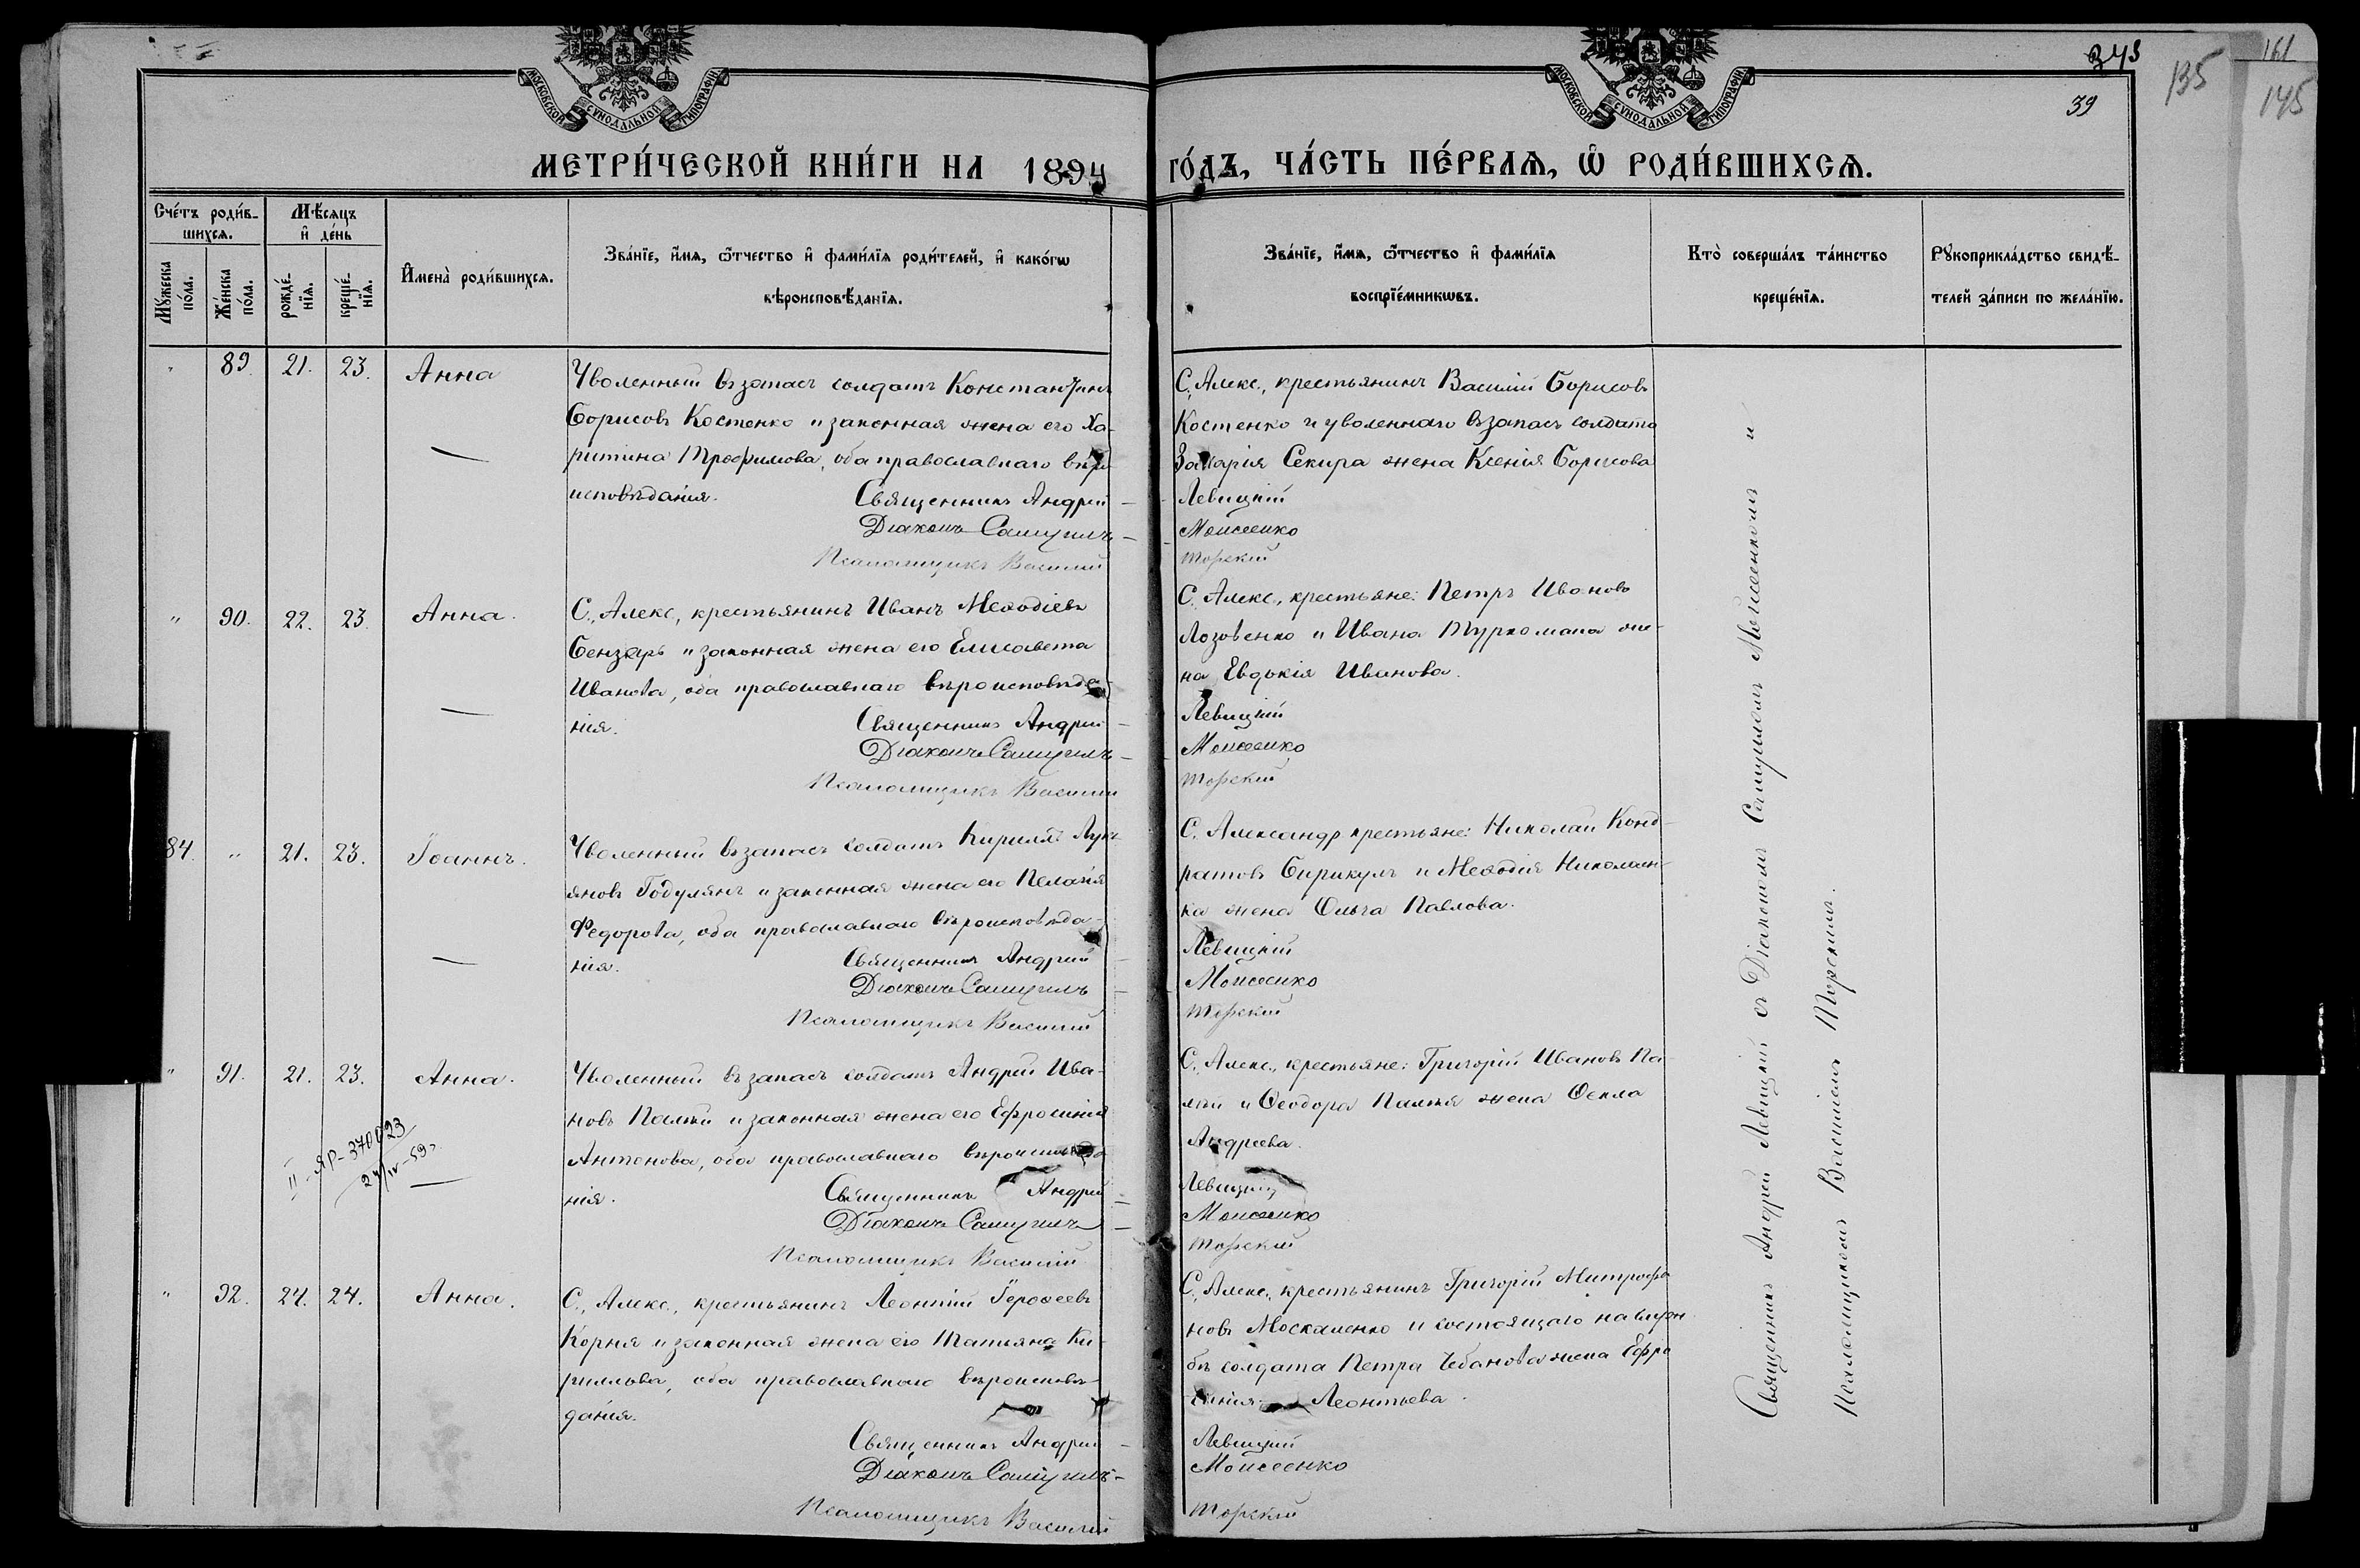 МОСКОВСКОЙ СѴНОДАЛЬНОЙ ТИПОГРАФІИ
МОСКОВСКОЙ СѴНОДАЛЬНОЙ ТИПОГРАФІИ
161
135
145
39
МЕТРИ́ЧЕСКОЙ КНИ́ГИ НА 1894 ГО́ДЪ, ЧА́СТЬ ПЕ́РВАѦ, Ѡ҆ РОДИ́ВШИХСѦ.
Сче́тъ роди́в-
шихсѧ.
Мѣ́сяцъ
и҆ де́нь
Мꙋ́жеска
по́ла.
Же́нска
по́ла.
рожде́-
нїѧ.
креще́-
нїѧ.
И҆мена̀ роди́вшихсѧ.
Зва́нїе, и҆́мѧ, ѻ҆́тчество и҆ фами́лїѧ роди́телей, и҆ како́гѡ
вѣроисповѣ́данїѧ.
Зва́нїе, и҆́мѧ, ѻ҆́тчество и҆ фами́лїѧ
воспрїе́мникѡвъ.
Кто̀ соверша́лъ та́инство
креще́нїѧ.
Рꙋкоприкла́дство свидѣ́-
телей за́писи по жела́нїю.
" 89. 21. 23. Анна
Уволенный въ запасъ солдатъ Константинъ
Борисовъ Костенко и законная жена его Ха-
ритина Трофимова, оба православнаго вѣро
исповѣданія.
Священникъ Андрей -
Діаконъ Самуилъ -
Псаломщикъ Василий
С. Алекс., крестьянинъ Василій Борисовъ
Костенко и уволеннаго въ запасъ солдата
Захарія Секира жена Ксенія Борисова
Левицкій
Моисеенко
Торский
" 90. 22. 23. Анна.
С., Алекс., крестьянинъ Иванъ Меѳодіевъ
Бензарь и законная жена его Елисавета
Иванова, оба православнаго вѣроисповѣда-
нія.
Священникъ Андрей -
Діаконъ Самуилъ -
Псаломщикъ Василий
С. Алекс., крестьяне: Петръ Ивановъ
Лозовенко и Ивана Туркомана же-
на Евдокія Иванова.
Левицкій
Моисеенко
Торский
84. " 21. 23. Іоаннъ.
Уволенный въ запасъ солдатъ Кириллъ Лукь-
яновъ Годулянъ и законная жена его Пелагія
Федорова, оба православнаго вѣроисповѣда-
нія.
Священникъ Андрей -
Діаконъ Самуилъ -
Псаломщикъ Василий
С. Александр. крестьяне: Николай Конд-
ратовъ Бирикулъ и Меѳодія Николаен-
ка жена Ольга Павлова.
Левицкій
Моисеенко
Торский
" 91. 21. 23. Анна.
Уволенный въ запасъ солдатъ Андрей Ива-
новъ Палий и законная жена его Ефросинія
Антонова, оба православнаго вѣроисповѣда
нія.
Священникъ Андрей -
Діаконъ Самуилъ -
Псаломщикъ Василий
II-ЯР-370023
24/IV-59г.
С. Алекс., крестьяне: Григорій Ивановъ Па-
лій и Ѳеодора Палія жена Ѳекла
Андреева.
Левицкій
Моисеенко
Торский
" 92. 24. 24. Анна.
С., Алекс., крестьянинъ Леонтий Героѳеевъ
Корня и законная жена его Татьяна Ки-
риллова, оба православнаго вѣроисповѣ-
данія.
Священникъ Андрей -
Діаконъ Самуилъ -
Псаломщикъ Василий
С. Алекс., крестьянинъ Григорій Митрофа
новъ Москаленко и состоящаго на служ
бѣ солдата Петра Чебанова жена Ефро
синия Леонтьева.
Левицкій
Моисеенко
Торский
Священникъ Андрей Левицкій съ Діакономъ Самуиломъ Моисеенкомъ и
Псаломщикомъ Василіемъ Торскимъ.